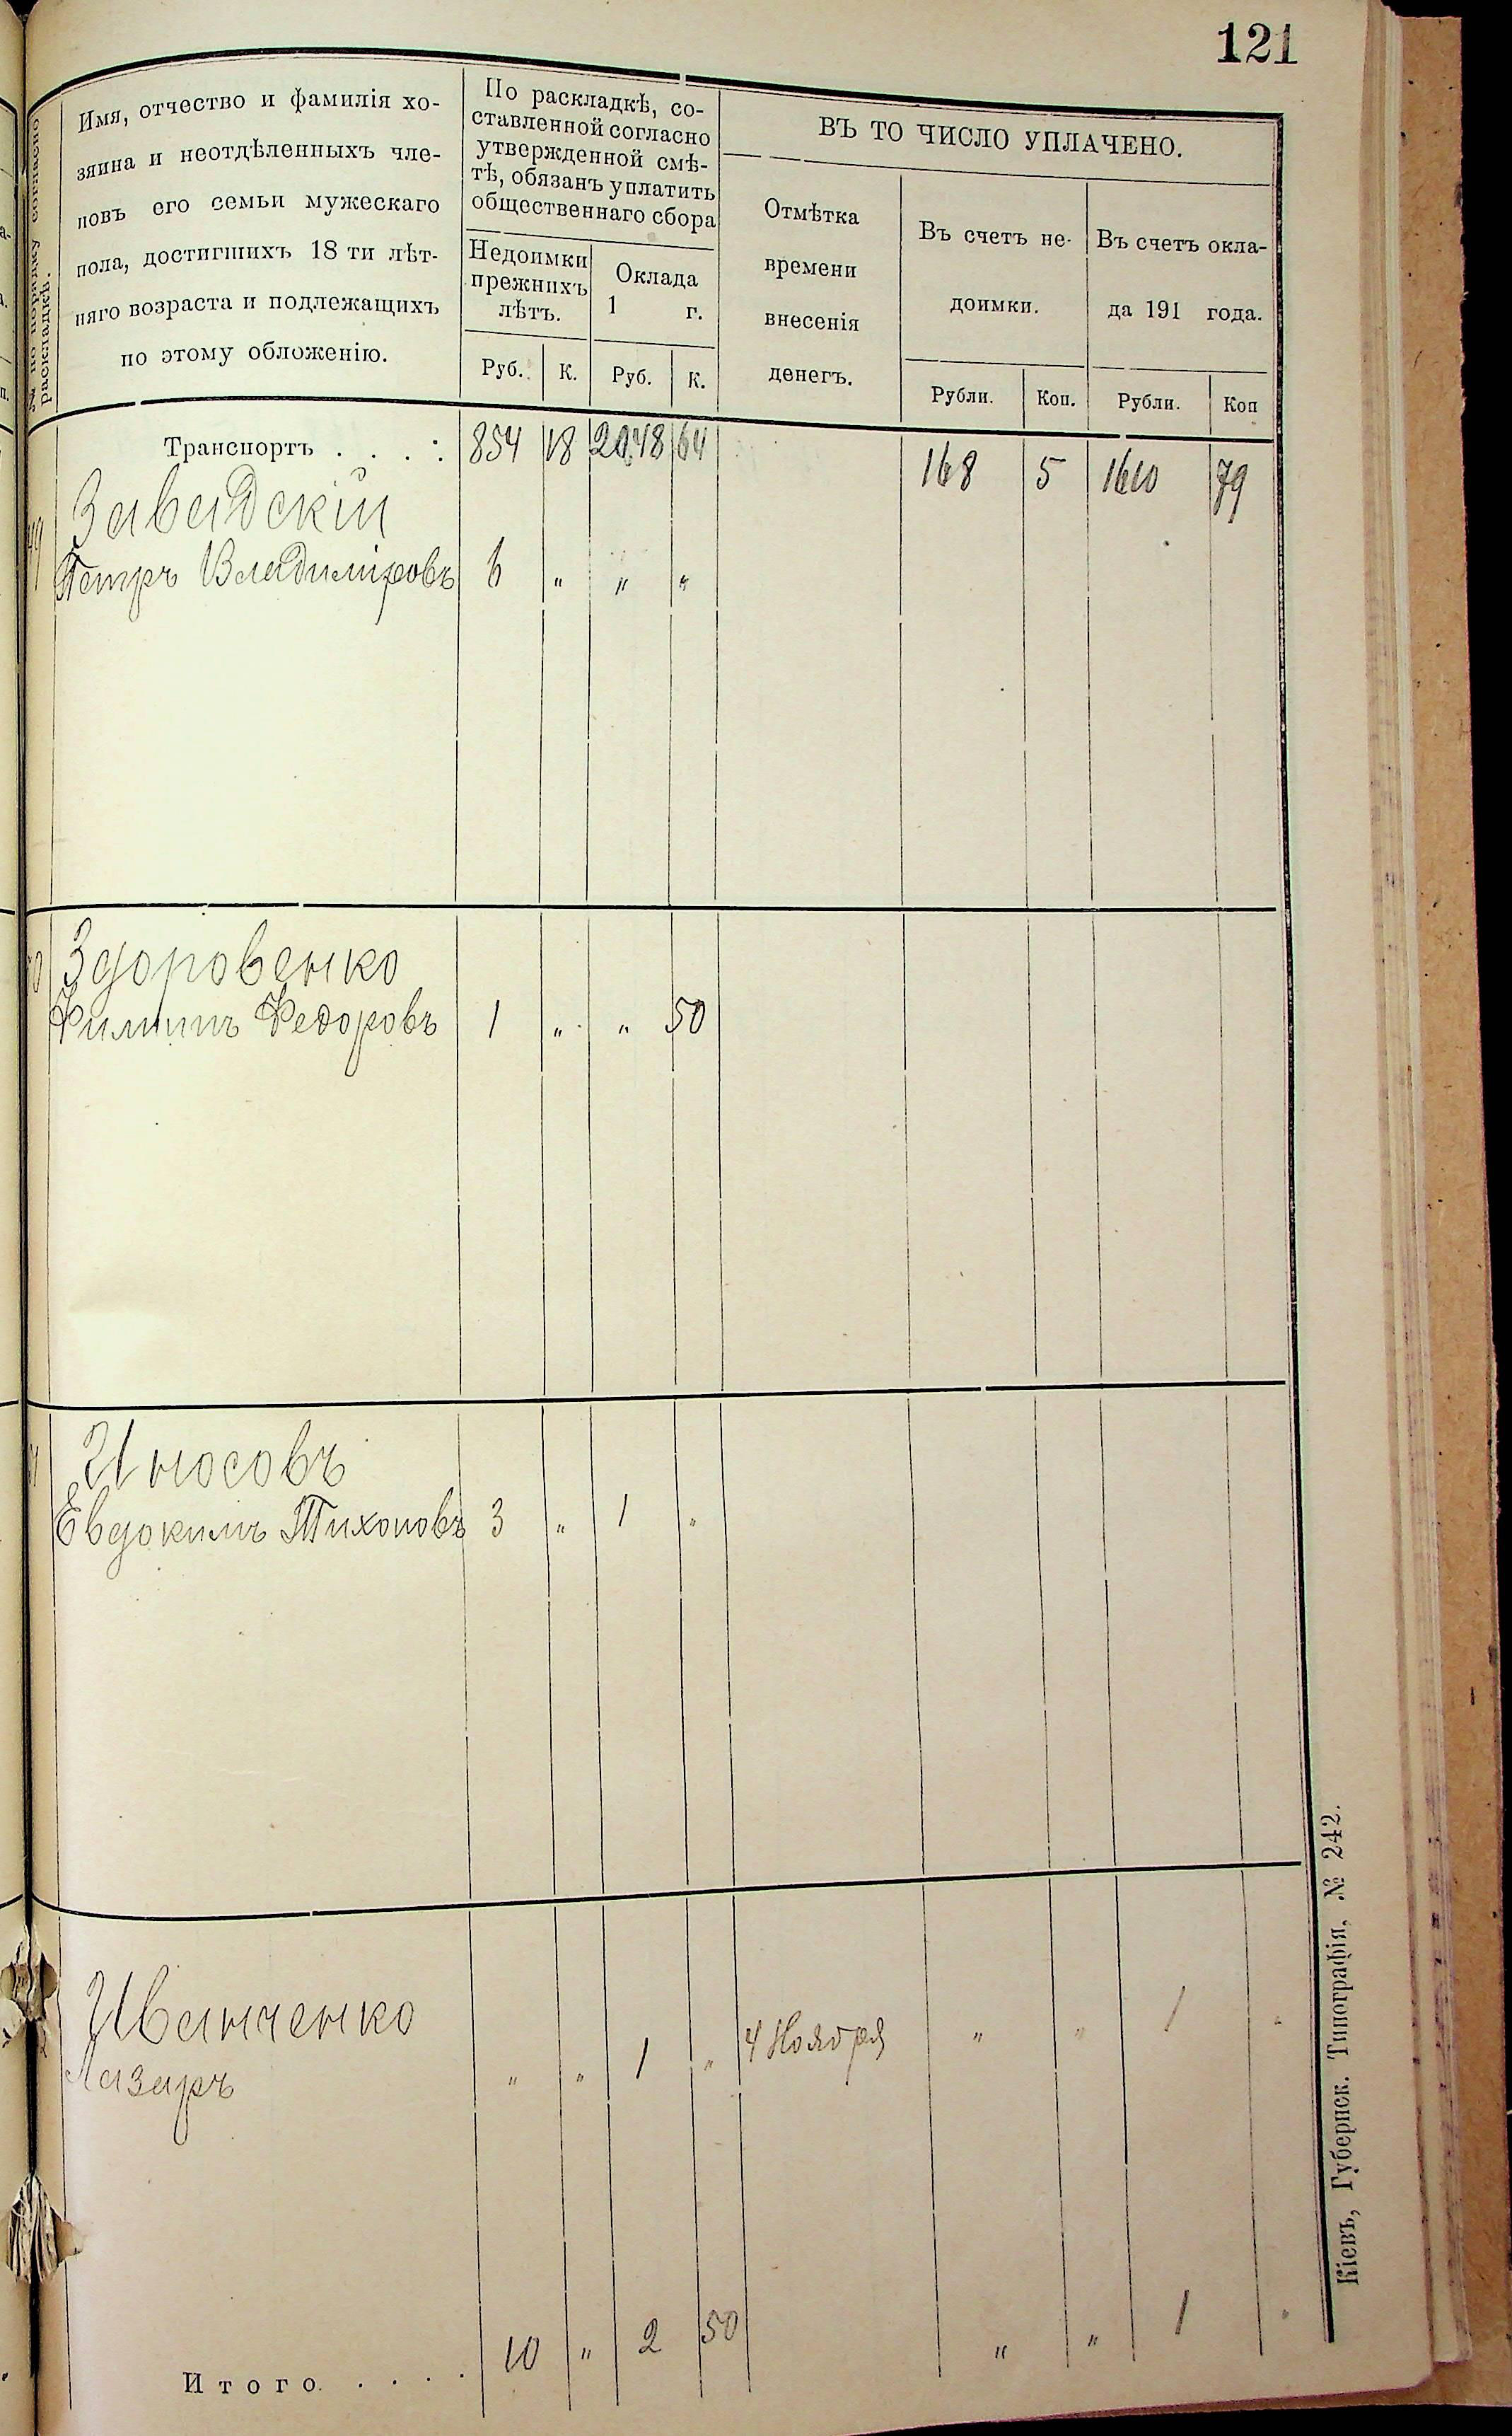 121
№ по порядку согласно
раскладкѣ.
Имя, отчество и фамилія хо-
зяина и неотдѣленныхъ чле-
новъ его семьи мужескаго
пола, достигшихъ 18 ти лѣт-
няго возраста и подлежащихъ
по этому обложенію.
По раскладкѣ, со-
ставленной согласно
утвержденной смѣ-
тѣ, обязанъ уплатить
общественнаго сбора
Недоимки
прежнихъ
лѣтъ.
Оклада
1 г.
Руб. К. Руб. К.
ВЪ ТО ЧИСЛО УПЛАЧЕНО.
Отмѣтка
времени
внесенія
денегъ.
Въ счетъ не-
доимки.
Въ счетъ окла-
да 191 года.
Рубли. Коп. Рубли. Коп
Транспортъ . . . . 854 18 2048 64 168 5 1610 79
Завадскій
Петръ Владиміровъ 6 " " "
Здоровенко
Филиппъ Федоровъ 1 " " 50
Иносовъ
Евдокимъ Тихоновъ 3 " 1 "
Иванченко
Лазаръ " " 1 " 4 Ноября " " 1 "
Итого. . . . . 10 " 2 50 " " 1 "
Кіевъ, Губернск. Типографія, № 242.